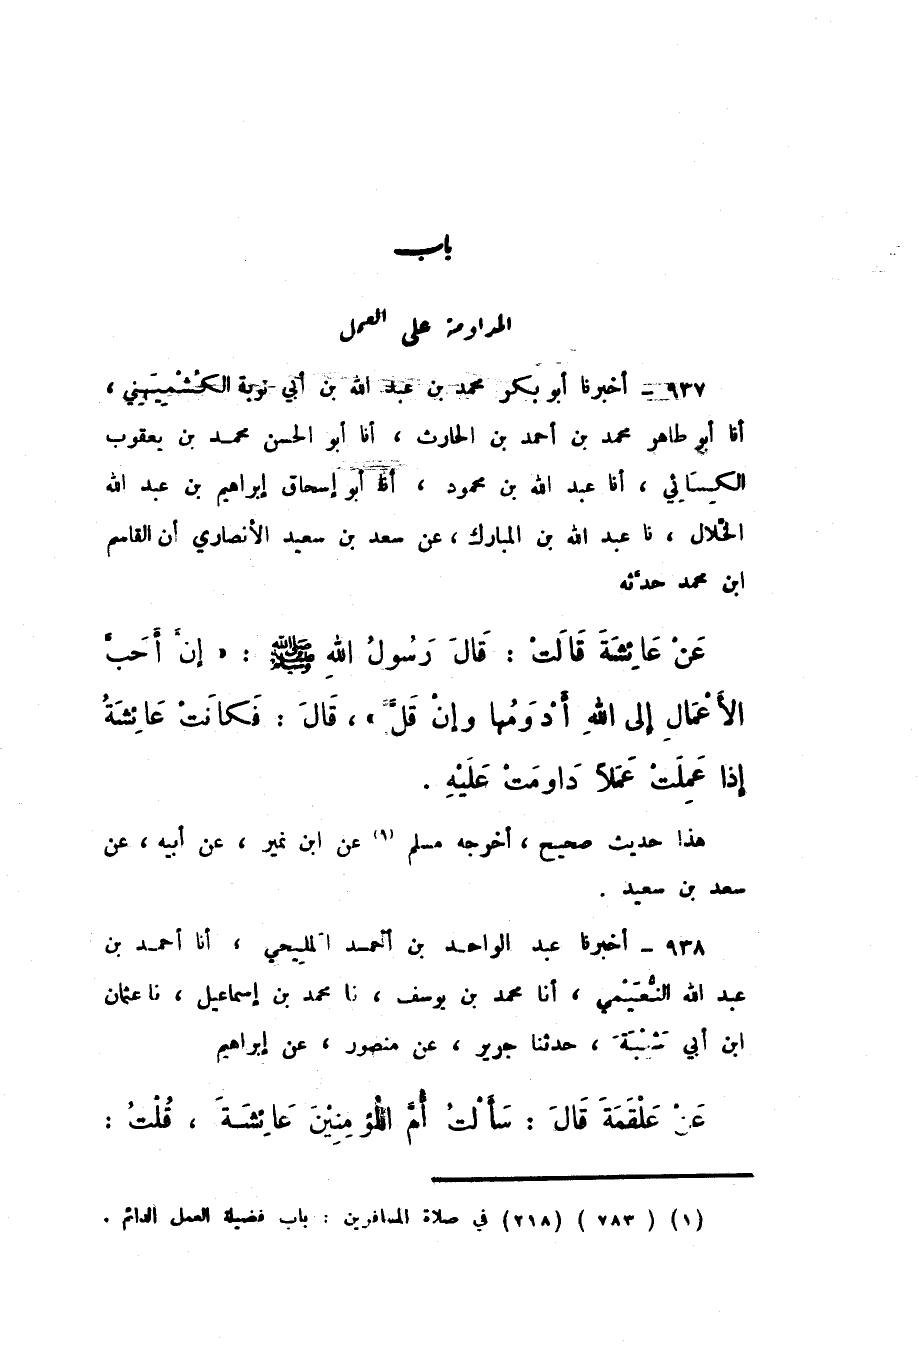 باب
المداومة على العمل
٩٣٧ ـ أخبرنا أبو بكر محمد بن عبد الله بن أبي توبة الكُشْمِيهَني ،
أنا أبو طاهر محمد بن أحمد بن الحارث ، أنا أبو الحسن محمد بن يعقوب
الكِسَائي ، أنا عبد الله بن محمود ، أنا أبو إسحاق إبراهيم بن عبد الله
الخلال ، نا عبد الله بن المبارك ، عن سعد بن سعيد الأنصاري أن القاسم
ابن محمد حدثه
عَنْ عَائِشَةَ قَالَتْ : قَالَ رَسُولُ اللهِ ﷺ : « إنَّ أَحَبَّ
الأَعْمَالِ إلى اللهِ أَدْوَمُها وإنْ قَلَّ » ، قَالَ : فَكَانَتْ عَائِشَةُ
إذا عَمِلَتْ عَمَلاً دَاوَمَتْ عَلَيْهِ .
هذا حديث صحيح ، أخرجه مسلم (١) عن ابن نمير ، عن أبيه ، عن
سعد بن سعيد .
٩٣٨ ـ أخبرنا عبد الواحد بن أحمد المليحي ، أنا أحمد بن
عبد الله النُّعَيْمي ، أنا محمد بن يوسف ، نا محمد بن إسماعيل ، نا عثمان
ابن أبي شَيْبَةَ ، حدثنا جرير ، عن منصور ، عن إبراهيم
عَنْ عَلْقَمَةَ قَالَ : سَأَلْتُ أُمَّ المُؤمِنِيْنَ عَائِشَةَ ، قُلْتُ :
(١) ( ٧٨٣ ) (٢١٨) في صلاة المسافرين : باب فضيلة العمل الدائم .